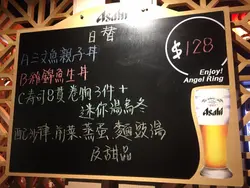 Asahi
日替
A 三文魚親子丼
B 雜錦魚生丼
C 壽司8貫卷物3件+
迷你湯烏冬
配沙律,前菜,蒸蛋,麵豉湯
及甜品
$128
Enjoy!
Angel Ring
Asahi